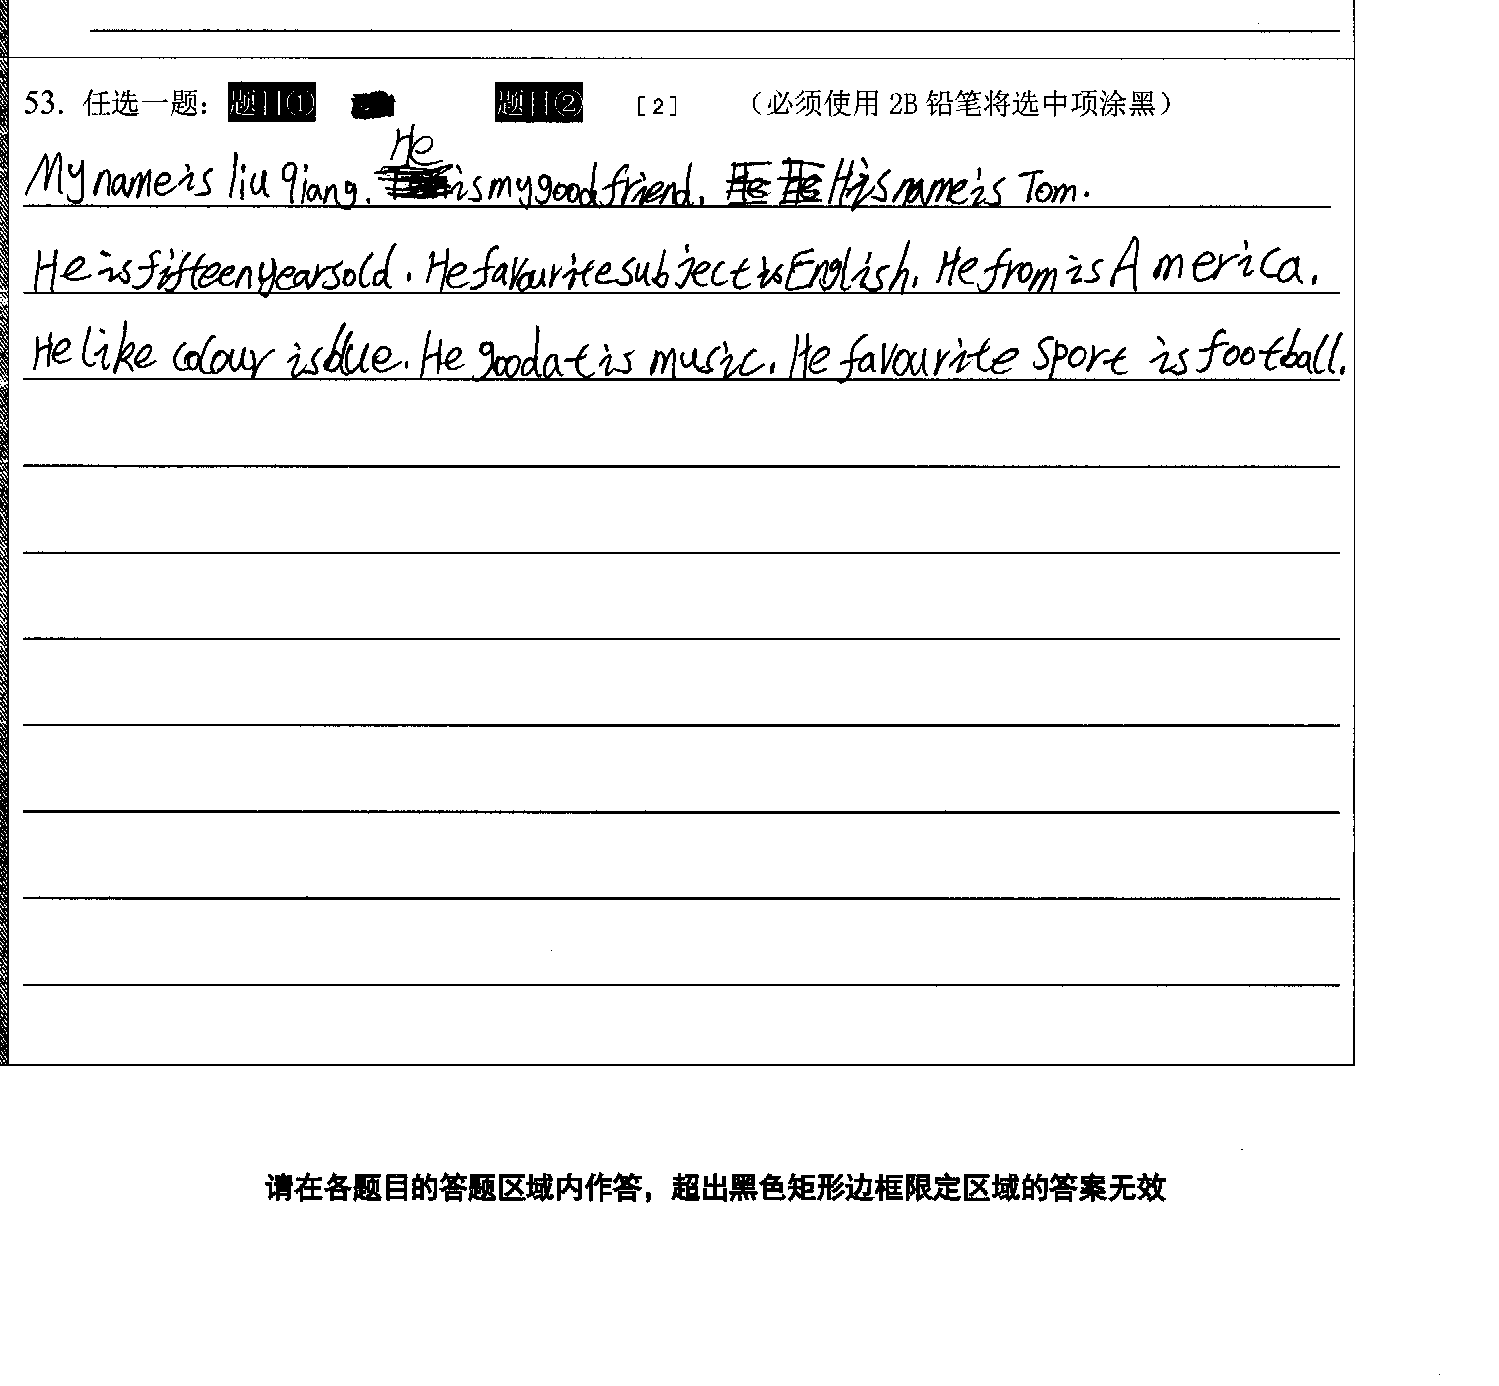 53. 任选一题： 题目① 题目② [2] （必须使用 2B 铅笔将选中项涂黑）
He
My name is liu qiang. is my good friend. His name is Tom.
He is fifteen years old. He favourite subject is English. He from is America.
He like colour is blue. He good at is music. He favourite sport is football.
请在各题目的答题区域内作答，超出黑色矩形边框限定区域的答案无效